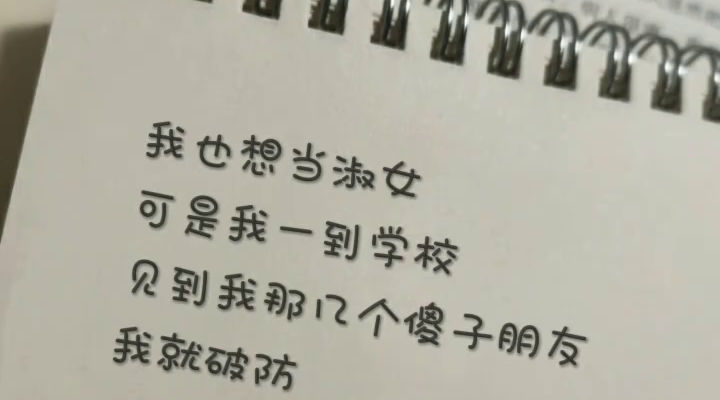 我也想当淑女
可是我一到学校
见到我那几个傻子朋友
我就破防